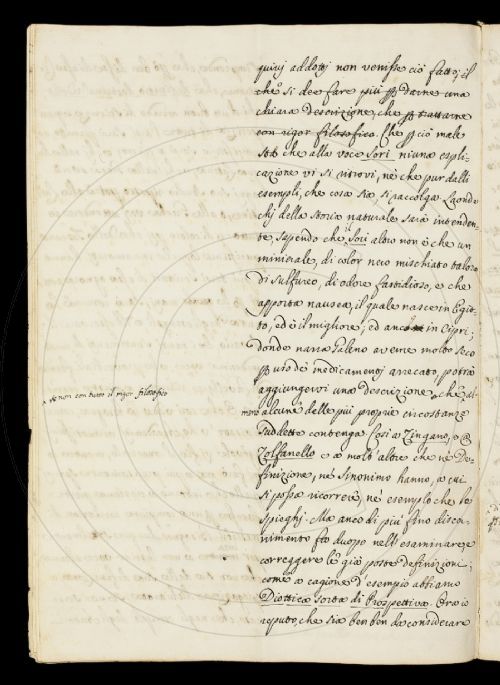 quivi addotti non venisse ciò fatto; il
che si dee fare più p darne una
chiara descrizione, che p trattarne
con rigor filosofico. Che p ciò male
sta che alla voce Sori niuna espli-
cazione vi si ritrovi, nè che pur dalli
esempli, che cosa sia si raccolga. Laonde
chi della storia naturale sarà intenden-
te, sapendo che il Sori altro non è che un
minerale, di color nero mischiato talora
di sulfureo, di odore fastidioso, e che
apporta nausea, il quale nasce in Egit-
to, ed è il migliore, ed anco in Cipri;
donde narra Galeno averne molto seco
p uso de medicamenti arrecato, potrà
aggiungervi una descrizione, che al-
^ se non con tutto il rigor filosofico
meno
alcune delle più proprie circostanze
suddette contenga. Così a Zingano, o a
Zolfanello e a molt' altre che nè De-
finizione, nè Sinonimo hanno, a cui
si possa ricorrere, nè esemplo che le
spieghi. Ma anco di più fino discer-
nimento fia duopo nell' esaminare, e
correggere le già poste definizioni;
come a cagione d' esempio abbiamo
Diottrica sorta di Prospettiva. Ora io
reputo, che sia ben ben da considerare